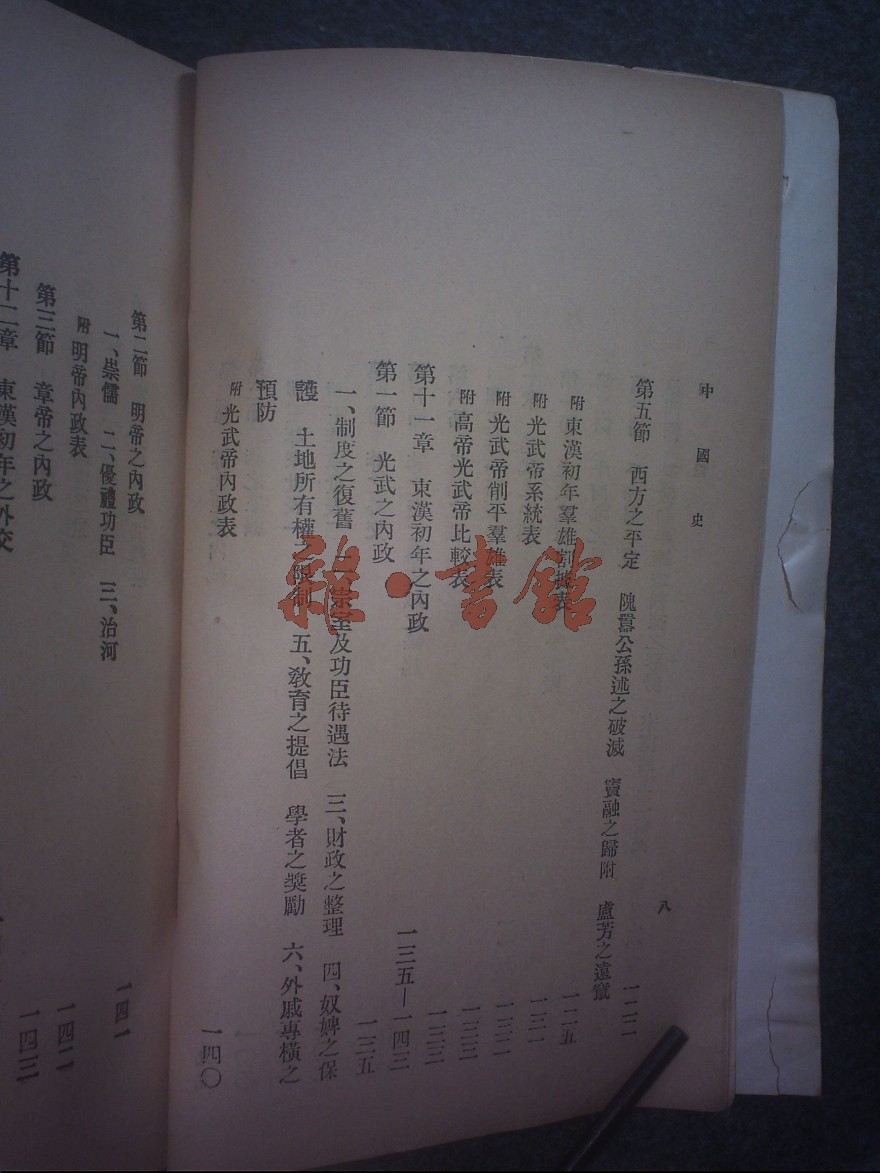 中國史
八
第五節　西方之平定　隗囂公孫述之破滅　竇融之歸附　盧芳之遠竄
附　東漢初年羣雄割據表　一二五
附　光武帝系統表　一三一
附　光武帝削平羣雄表　一三二
附　高帝光武帝比較表　一三三
第十一章　東漢初年之內政　一三五—一四三
第一節　光武之內政　一三五
一、制度之復舊　二、宗室及功臣待遇法　三、財政之整理　四、奴婢之保
護　土地所有權之限制　五、教育之提倡　學者之獎勵　六、外戚專橫之
預防
附　光武帝內政表　一四〇
第二節　明帝之內政　一四一
一、崇儒　二、優禮功臣　三、治河
附　明帝內政表　一四二
第三節　章帝之內政　一四三
第十二章　東漢初年之外交
雜·書館